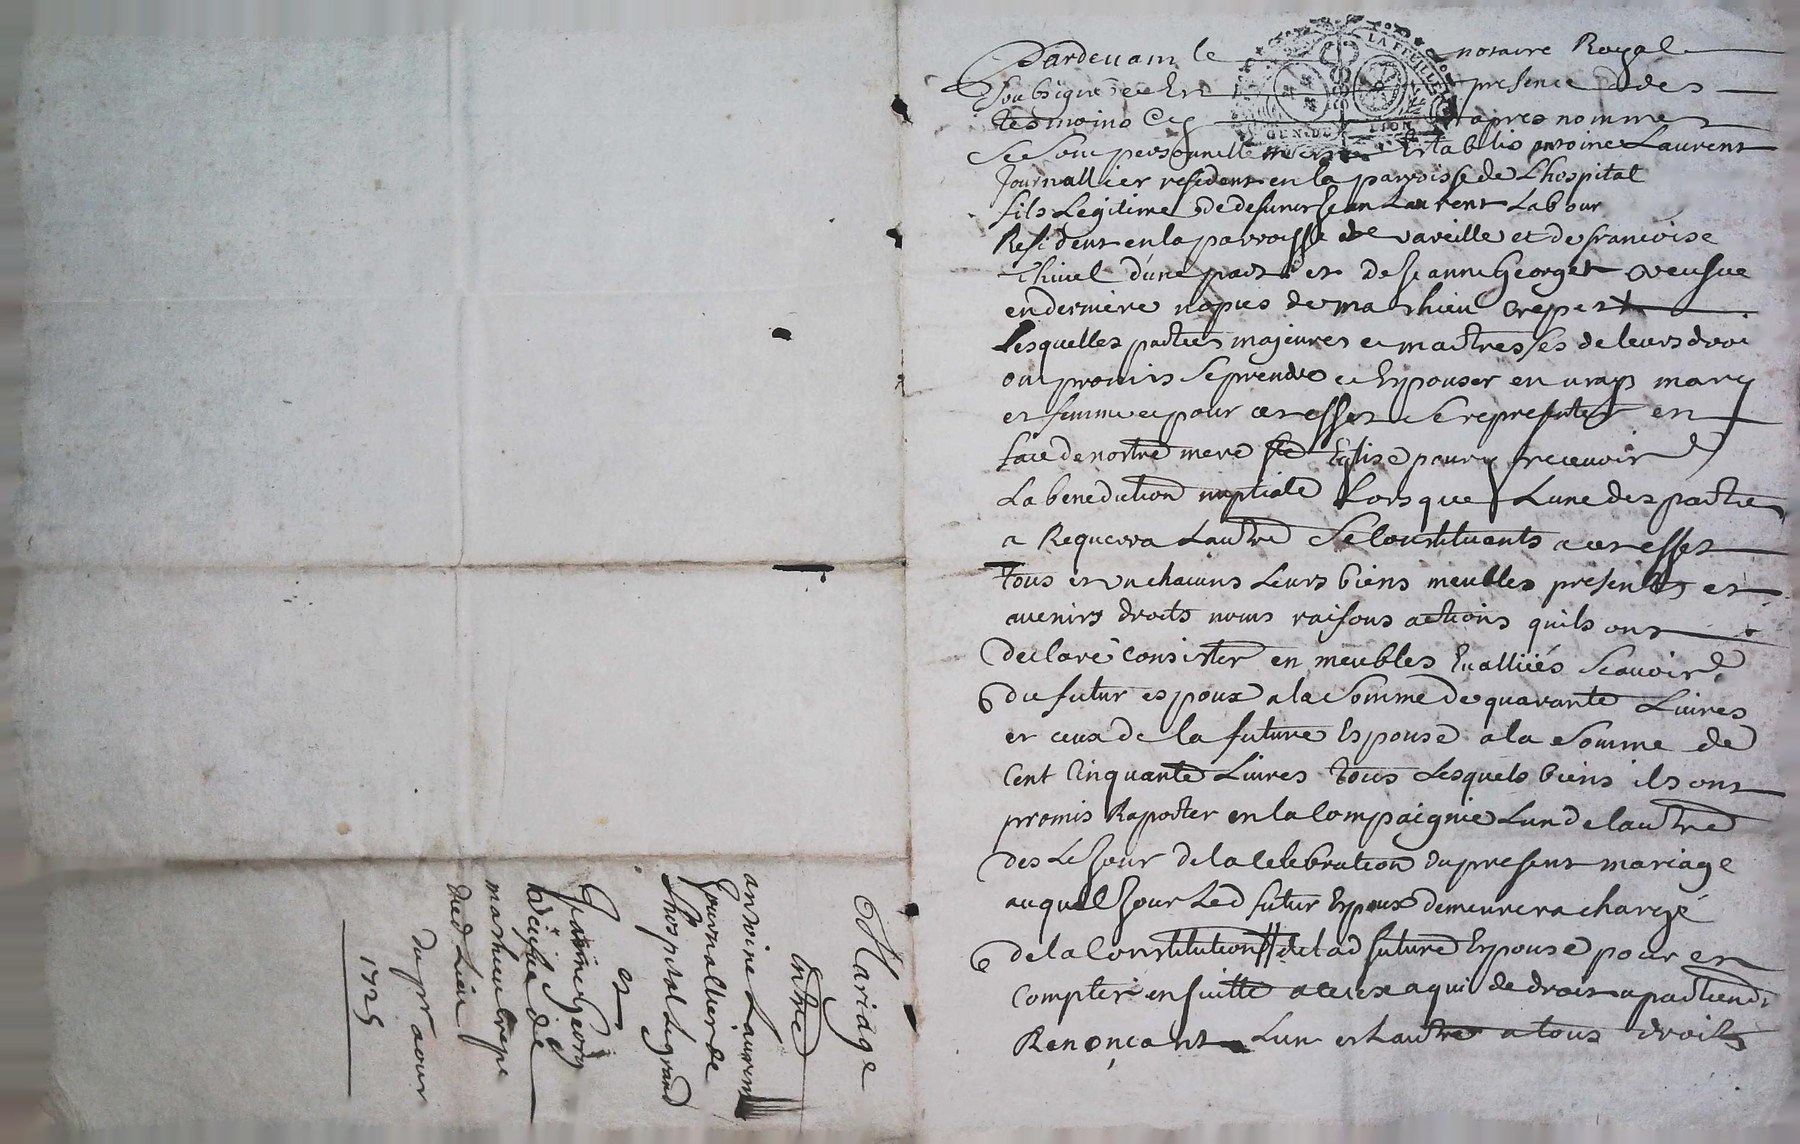 Pardevam le notaire Royal
Soubsigné et En presence des
tesmoins Cy apres nommes
Se sont personnellement Establis antoine Laurent
Journallier resident en la parroisse de Lhospital
fils Legitime de defunct Jean Laurent Labour
Resident en la parroisse de vareille et de francoise
Thivel d'une part et de Jeanne Georget veufue
en derniere nopces de mathieu Crepet
Lesquelles parties majeures et maitresses de leurs droi
ont promis Se prendre et Espouser en vrays mary
et femme et pour cet effet Se representer en
face de nostre mere Ste Eglise pour y recevoir
La benediction nuptiale Lors que Lune des partie
a Requerra Lautre Se Constituants a cet effet
Tous et un chacuns Leurs biens meubles presents et
avenirs droits noms raisons actions quils ont
declaré consister en meubles Evallüés Scavoir
du futur espoux a la Somme de quarante Livres
et ceux de la future Espouse a la Somme de
Cent Cinquante Livres Tous Lesquels biens ils ont
promis Raporter en la Compaignie Lun de lautre
des Le Jour de la Celebration du present mariage
auquel Jour Led futur Espoux demeurera chargé
de la Constitution de lad future Espouse pour en
Compter en suitte a ceux a qui de droit apartiend
Renonçant Lun et Lautre a tous droits
LA FEUILLE
GEN. DE LION
Mariage
Entre
antoine Laurent
Journallier de
Lhospital Le grand
et
Jeanne Georg
veufue de
mathieu Crepe
dud Lieu
du pr aour
1725